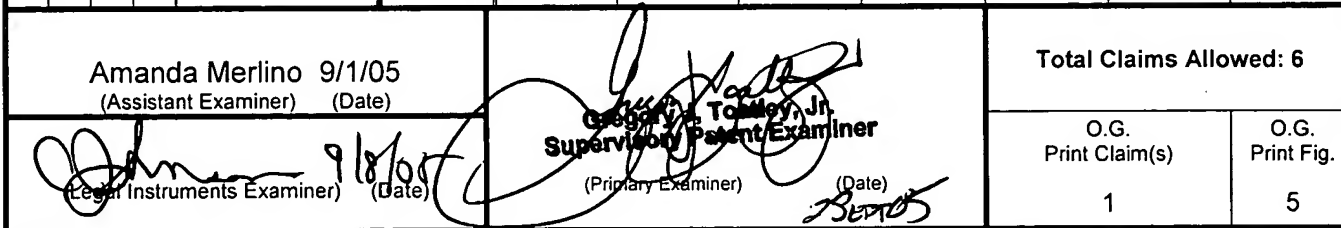 Amanda Merlino 9/1/05
(Assistant Examiner) (Date)
Johnson 9/8/05
(Legal Instruments Examiner) (Date)
Gregory J. Toatley, Jr.
Supervisory Patent Examiner
(Primary Examiner) (Date)
2SEPT05
Total Claims Allowed: 6
O.G.
Print Claim(s)
1
O.G.
Print Fig.
5